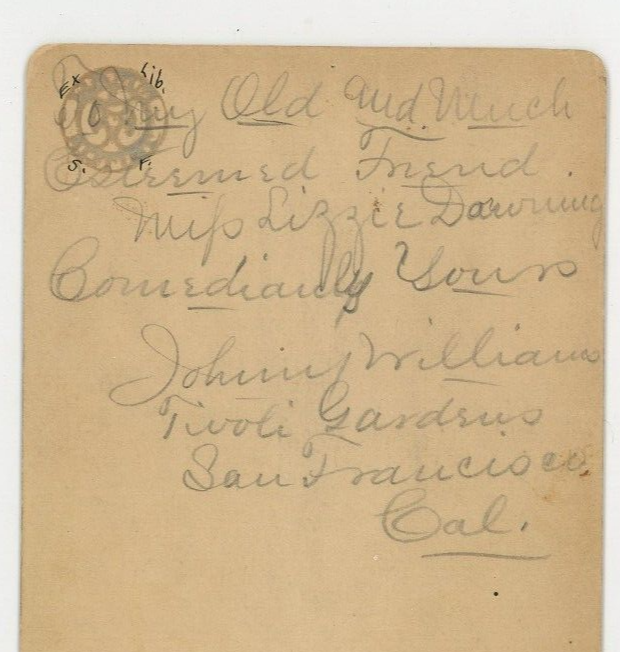 Ex Lib.
S. F.
To my Old And Much
Esteemed Friend.
Miss Lizzie Downing
Comedianly Yours
Johnny Williams
Tivoli Gardens
San Francisco,
Cal.